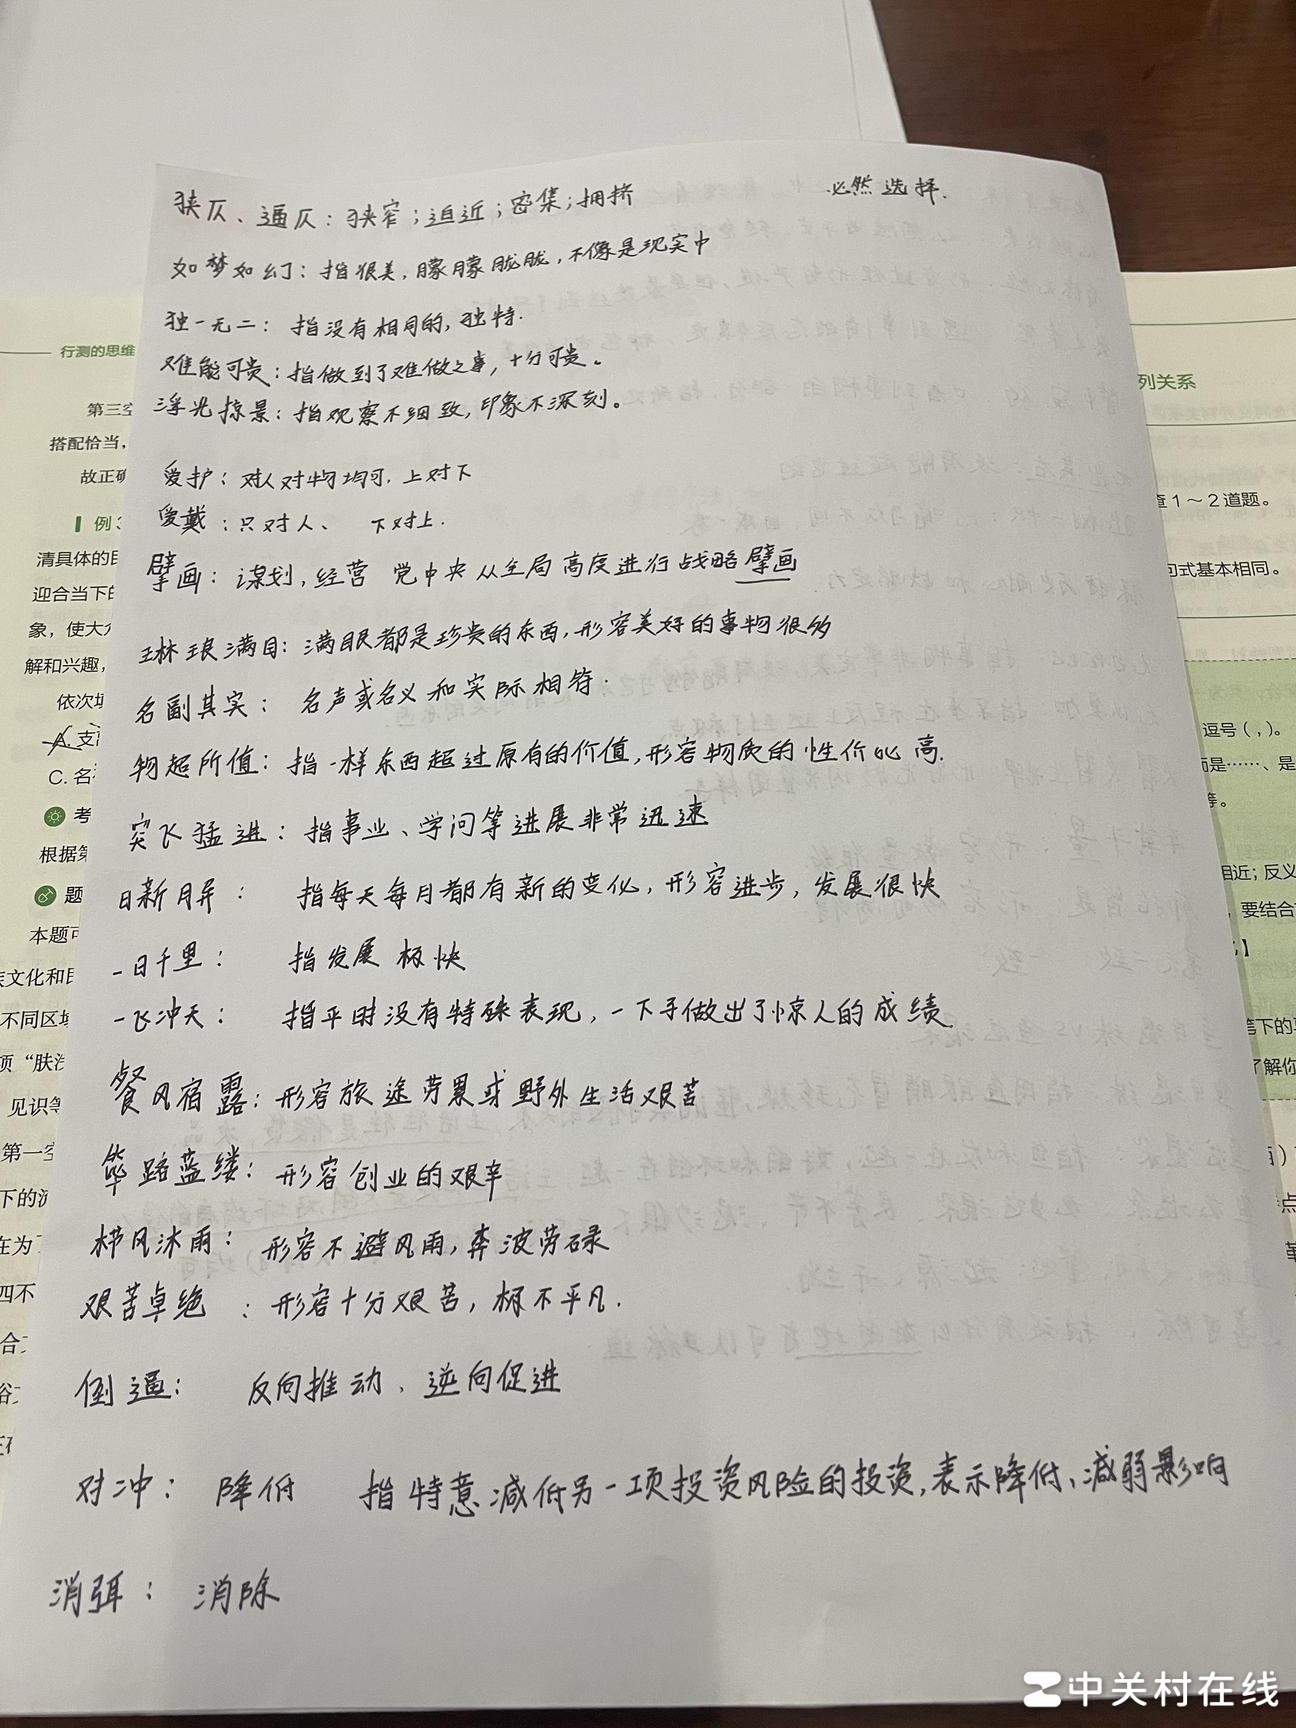 狭仄、逼仄：狭窄；迫近；密集；拥挤
必然选择.
如梦如幻：指很美，朦朦胧胧，不像是现实中
独一无二：指没有相同的，独特.
难能可贵：指做到了难做之事，十分可贵。
浮光掠景：指观察不细致，印象不深刻。
爱护：对人对物均可，上对下
爱戴：只对人、下对上.
擘画：谋划，经营 党中央从全局高度进行战略擘画
琳琅满目：满眼都是珍贵的东西，形容美好的事物很多
名副其实：名声或名义和实际相符.
物超所值：指一样东西超过原有的价值，形容物质的性价比高.
突飞猛进：指事业、学问等进展非常迅速
日新月异：指每天每月都有新的变化，形容进步，发展很快
一日千里：指发展极快
一飞冲天：指平时没有特殊表现，一下子做出了惊人的成绩.
餐风宿露：形容旅途劳累或野外生活艰苦
筚路蓝缕：形容创业的艰辛
栉风沐雨：形容不避风雨，奔波劳碌
艰苦卓绝：形容十分艰苦，极不平凡.
倒逼：反向推动、逆向促进
对冲：降低 指特意减低另一项投资风险的投资，表示降低、减弱影响
消弭：消除
行测的思维
第三空
搭配恰当，
故正确
例3
清具体的目
迎合当下的
象，使大众
解和兴趣，
依次填
A. 支
C. 名
考
根据第
题
本题可
族文化和民
不同区域
项“肤浅
见识等
第一空
下的流
在为了
四不
列关系
查1～2道题。
句式基本相同。
逗号（，）。
而是……、是
等。
相近；反义
，要结合
笔下的
了解你
中关村在线